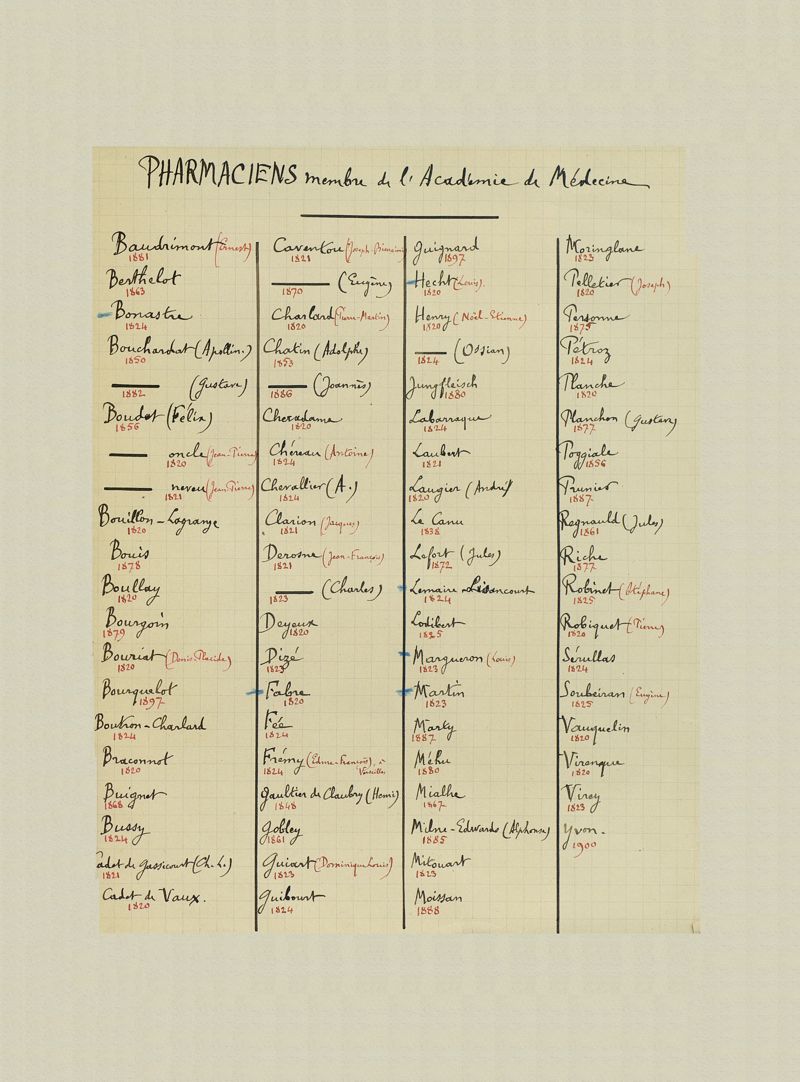 PHARMACIENS membre de l'Académie de Médecine
Baudrimont (Ernest)
1881
Berthelot
1863
Bonastre
1824
Bouchardat (Apollin.)
1850
—— (Gustave)
1882
Boudet (Félix)
1856
—— oncle (Jean-Pierre)
1820
—— neveu (Jean Pierre)
1821
Bouillon-Lagrange
1820
Bouis
1878
Boullay
1820
Bourgoin
1879
Bouriat (Denis Placide)
1820
Bourquelot
1897
Boutron-Charlard
1824
Braconnot
1820
Buignet
1868
Bussy
1824
adet de Gassicourt (Ch. L.)
1821
Cadet de Vaux.
1820
Caventou (Joseph-Bienaimé)
1821
—— (Eugène)
1870
Charlard (Pierre-Martin)
1820
Chatin (Adolphe)
1853
—— (Joannès)
1886
Cheradame
1820
Chéreau (Antoine)
1824
Chevallier (A.)
1824
Clarion (Jacques)
1821
Derosne (Jean-François)
1821
—— (Charles)
1823
Deyeux
1820
Dizé
1823
Fabre
1820
Fée
1824
Frémy (Edme-François), à Versailles
1824
Gaultier de Claubry (Henri)
1848
Gobley
1861
Guiart (Dominique Louis)
1823
Guibourt
1824
Guignard
1897
Hecht (Louis).
1820
Henry (Noël-Etienne)
1820
—— (Ossian)
1824
Jungfleisch
1880
Labarraque
1824
Laubert
1821
Laugier (André)
1820
Le Canu
1838
Lefort (Jules)
1872
Lemaire-Lisancourt
1824
Lodibert
1825
Margueron (Louis)
1823
Martin
1823
Marty
1887
Méhu
1880
Mialhe
1867
Milne-Edwards (Alphonse)
1885
Mitouart
1823
Moissan
1888
Moringlane
1823
Pelletier (Joseph)
1820
Personne
1875
Pétroz
1824
Planche
1820
Planchon (Gustave)
1877
Poggiale
1856
Prunier
1887
Regnauld (Jules)
1861
Riche
1877
Robinet (Stéphane)
1825
Robiquet (Pierre)
1820
Sérullas
1824
Soubeiran (Eugène)
1825
Vauquelin
1820
Virenque
1820
Virey
1823
Yvon.
1900